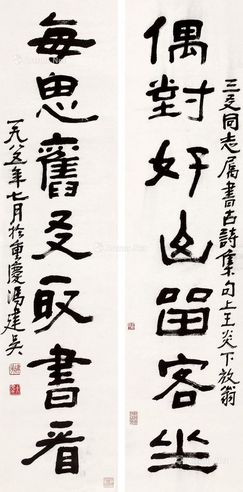 偶對好山留客坐
三爻同志属書古詩集句上王炎下放翁
每思舊友取書看
一九八五年七月於重慶馮建吳